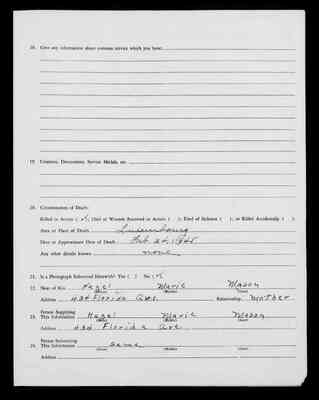 18. Give any information about overseas service which you have:
19. Citations, Decorations, Service Medals, etc.
20. Circumstances of Death:
Killed in Action ( ✓ ); Died of Wounds Received in Action ( ); Died of Sickness ( ); or Killed Accidentally ( ).
Area or Place of Death Luxembourg
Date or Approximate Date of Death Feb. 24, 1945
Any other details known none
21. Is a Photograph Submitted Herewith? Yes ( ) No ( ✓ )
22. Name of Kin Hazel Marie Mason
(First) (Middle) (Last)
Address 434 Florida Ave. Relationship Mother
Person Supplying
23. This Information Hazel Marie Mason
(First) (Middle) (Last)
Address 434 Florida Ave
Person Submitting
24. This Information Same
(First) (Middle) (Last)
Address